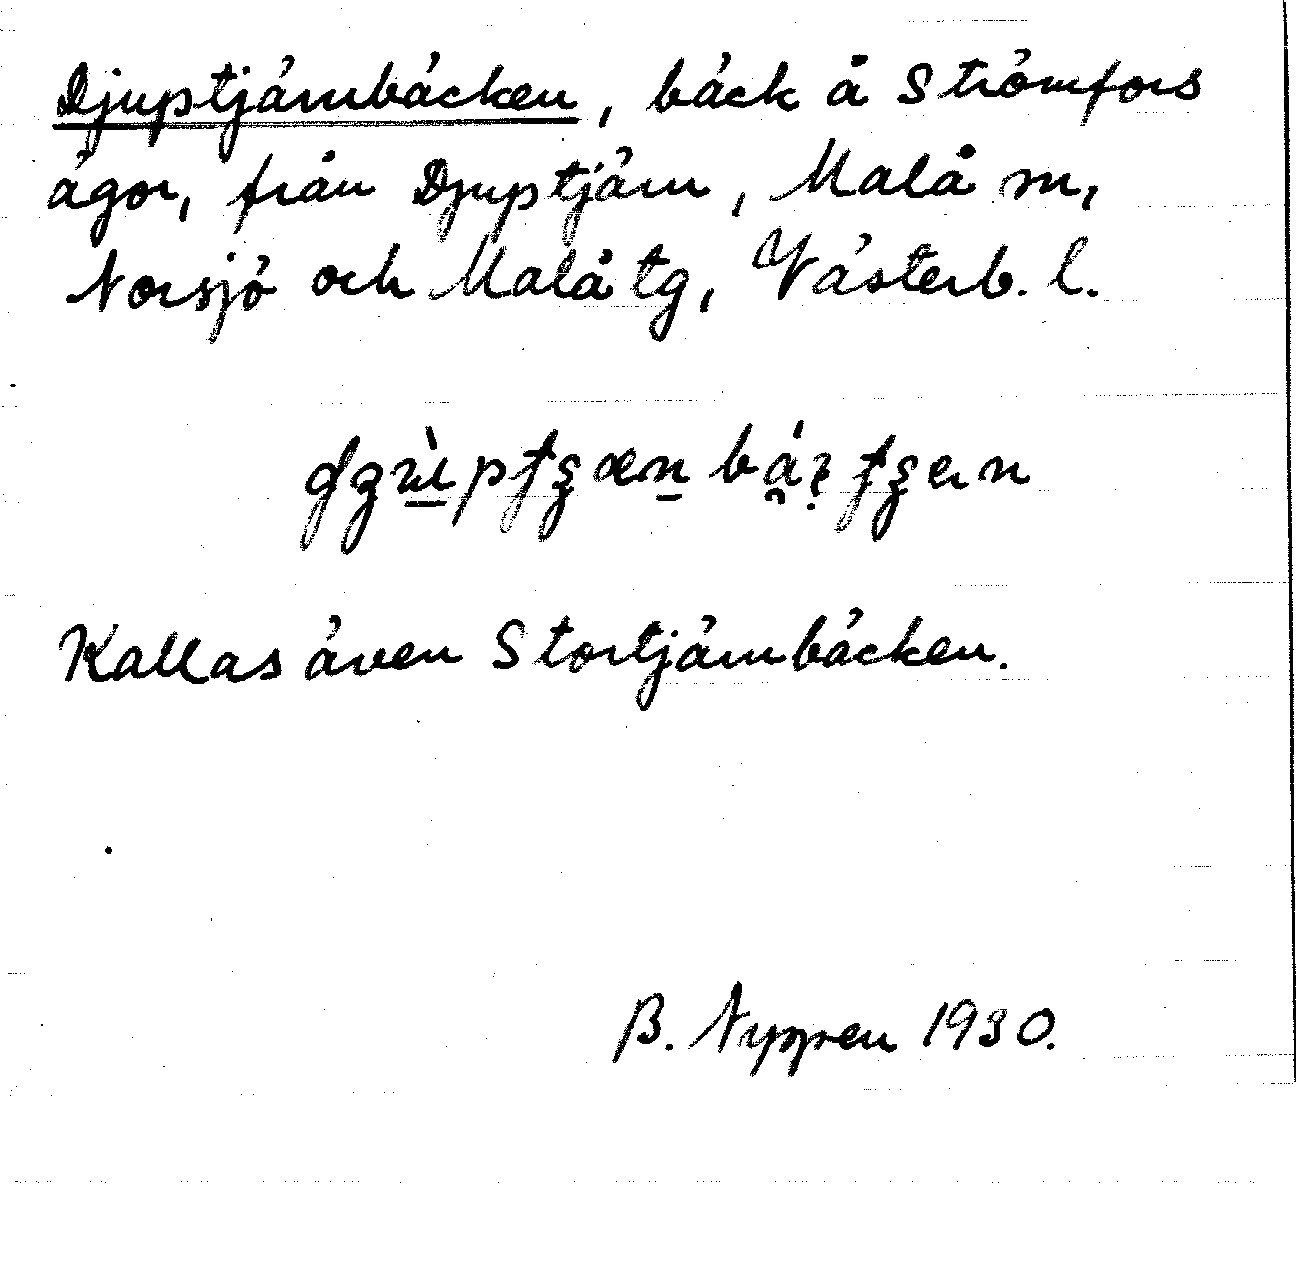 Djuptjärnbäcken, bäck å Strömfors
ägor, från Djuptjärn, Malå sn,
Norsjö och Malå tg, Västerb. l.
Kallas även Stortjärnbäcken.
B. 1930.